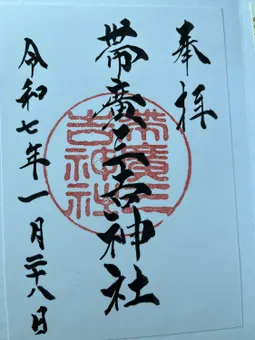 奉拝
帯廣三吉神社
帯廣三
吉神社
令和七年一月二十八日